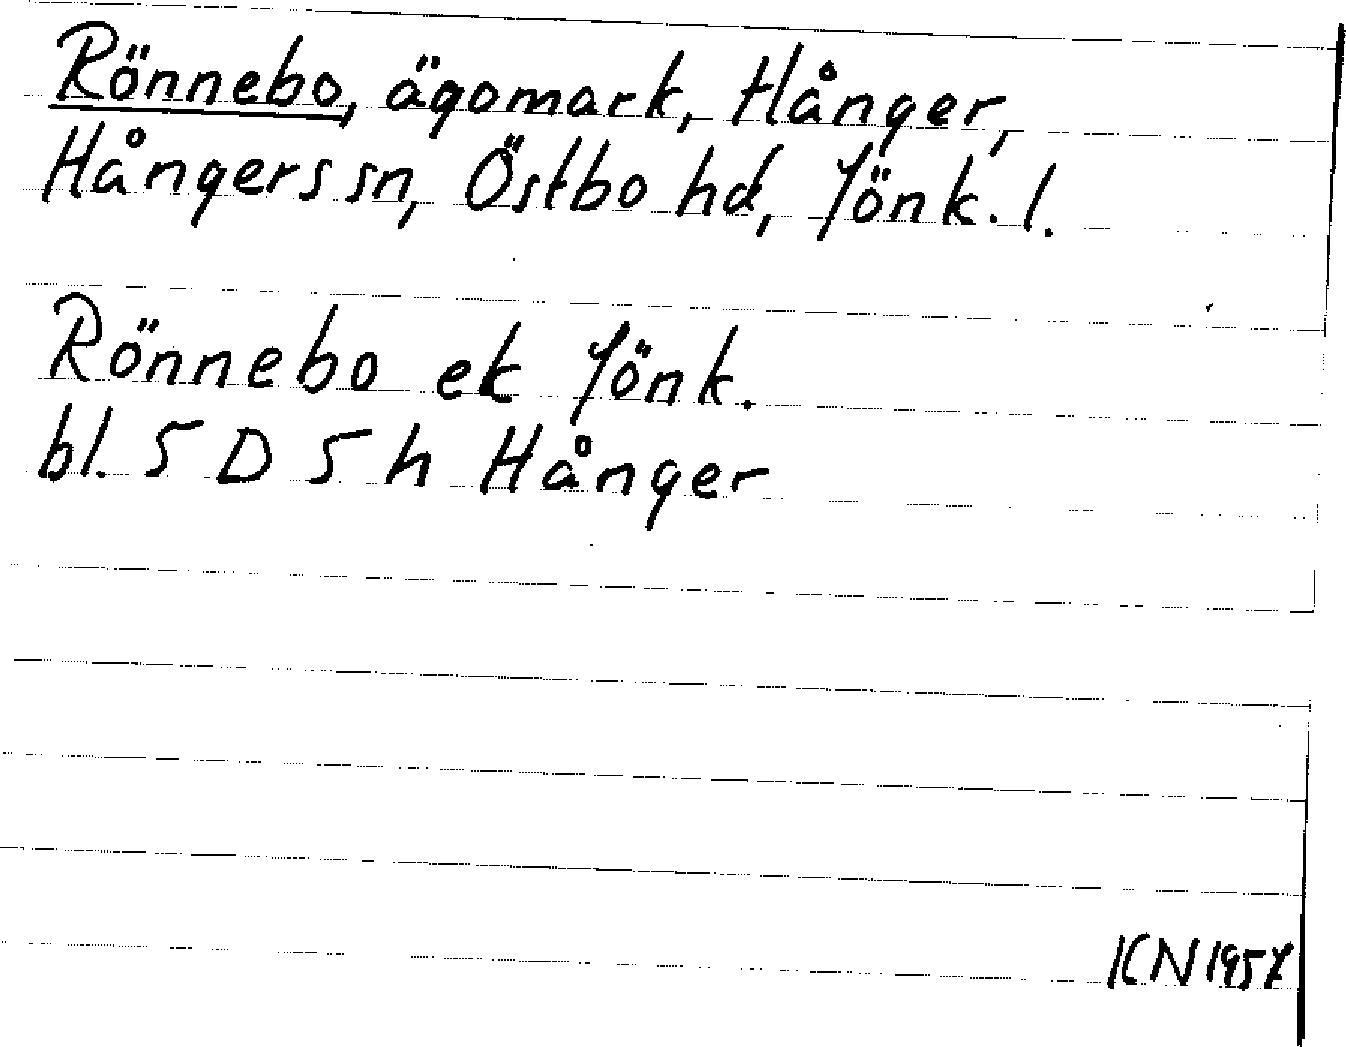 Rönnebo, ägomark, Hånger,
Hångers sn, Östbo hd, Jönk. l.
Rönnebo ek Jönk.
bl. 5 D 5 h Hånger
KN 1957